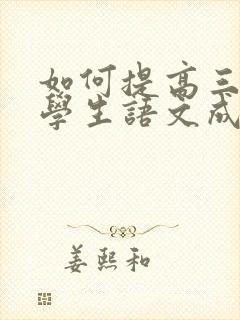 如何提高三
學生語文成
姜熙和